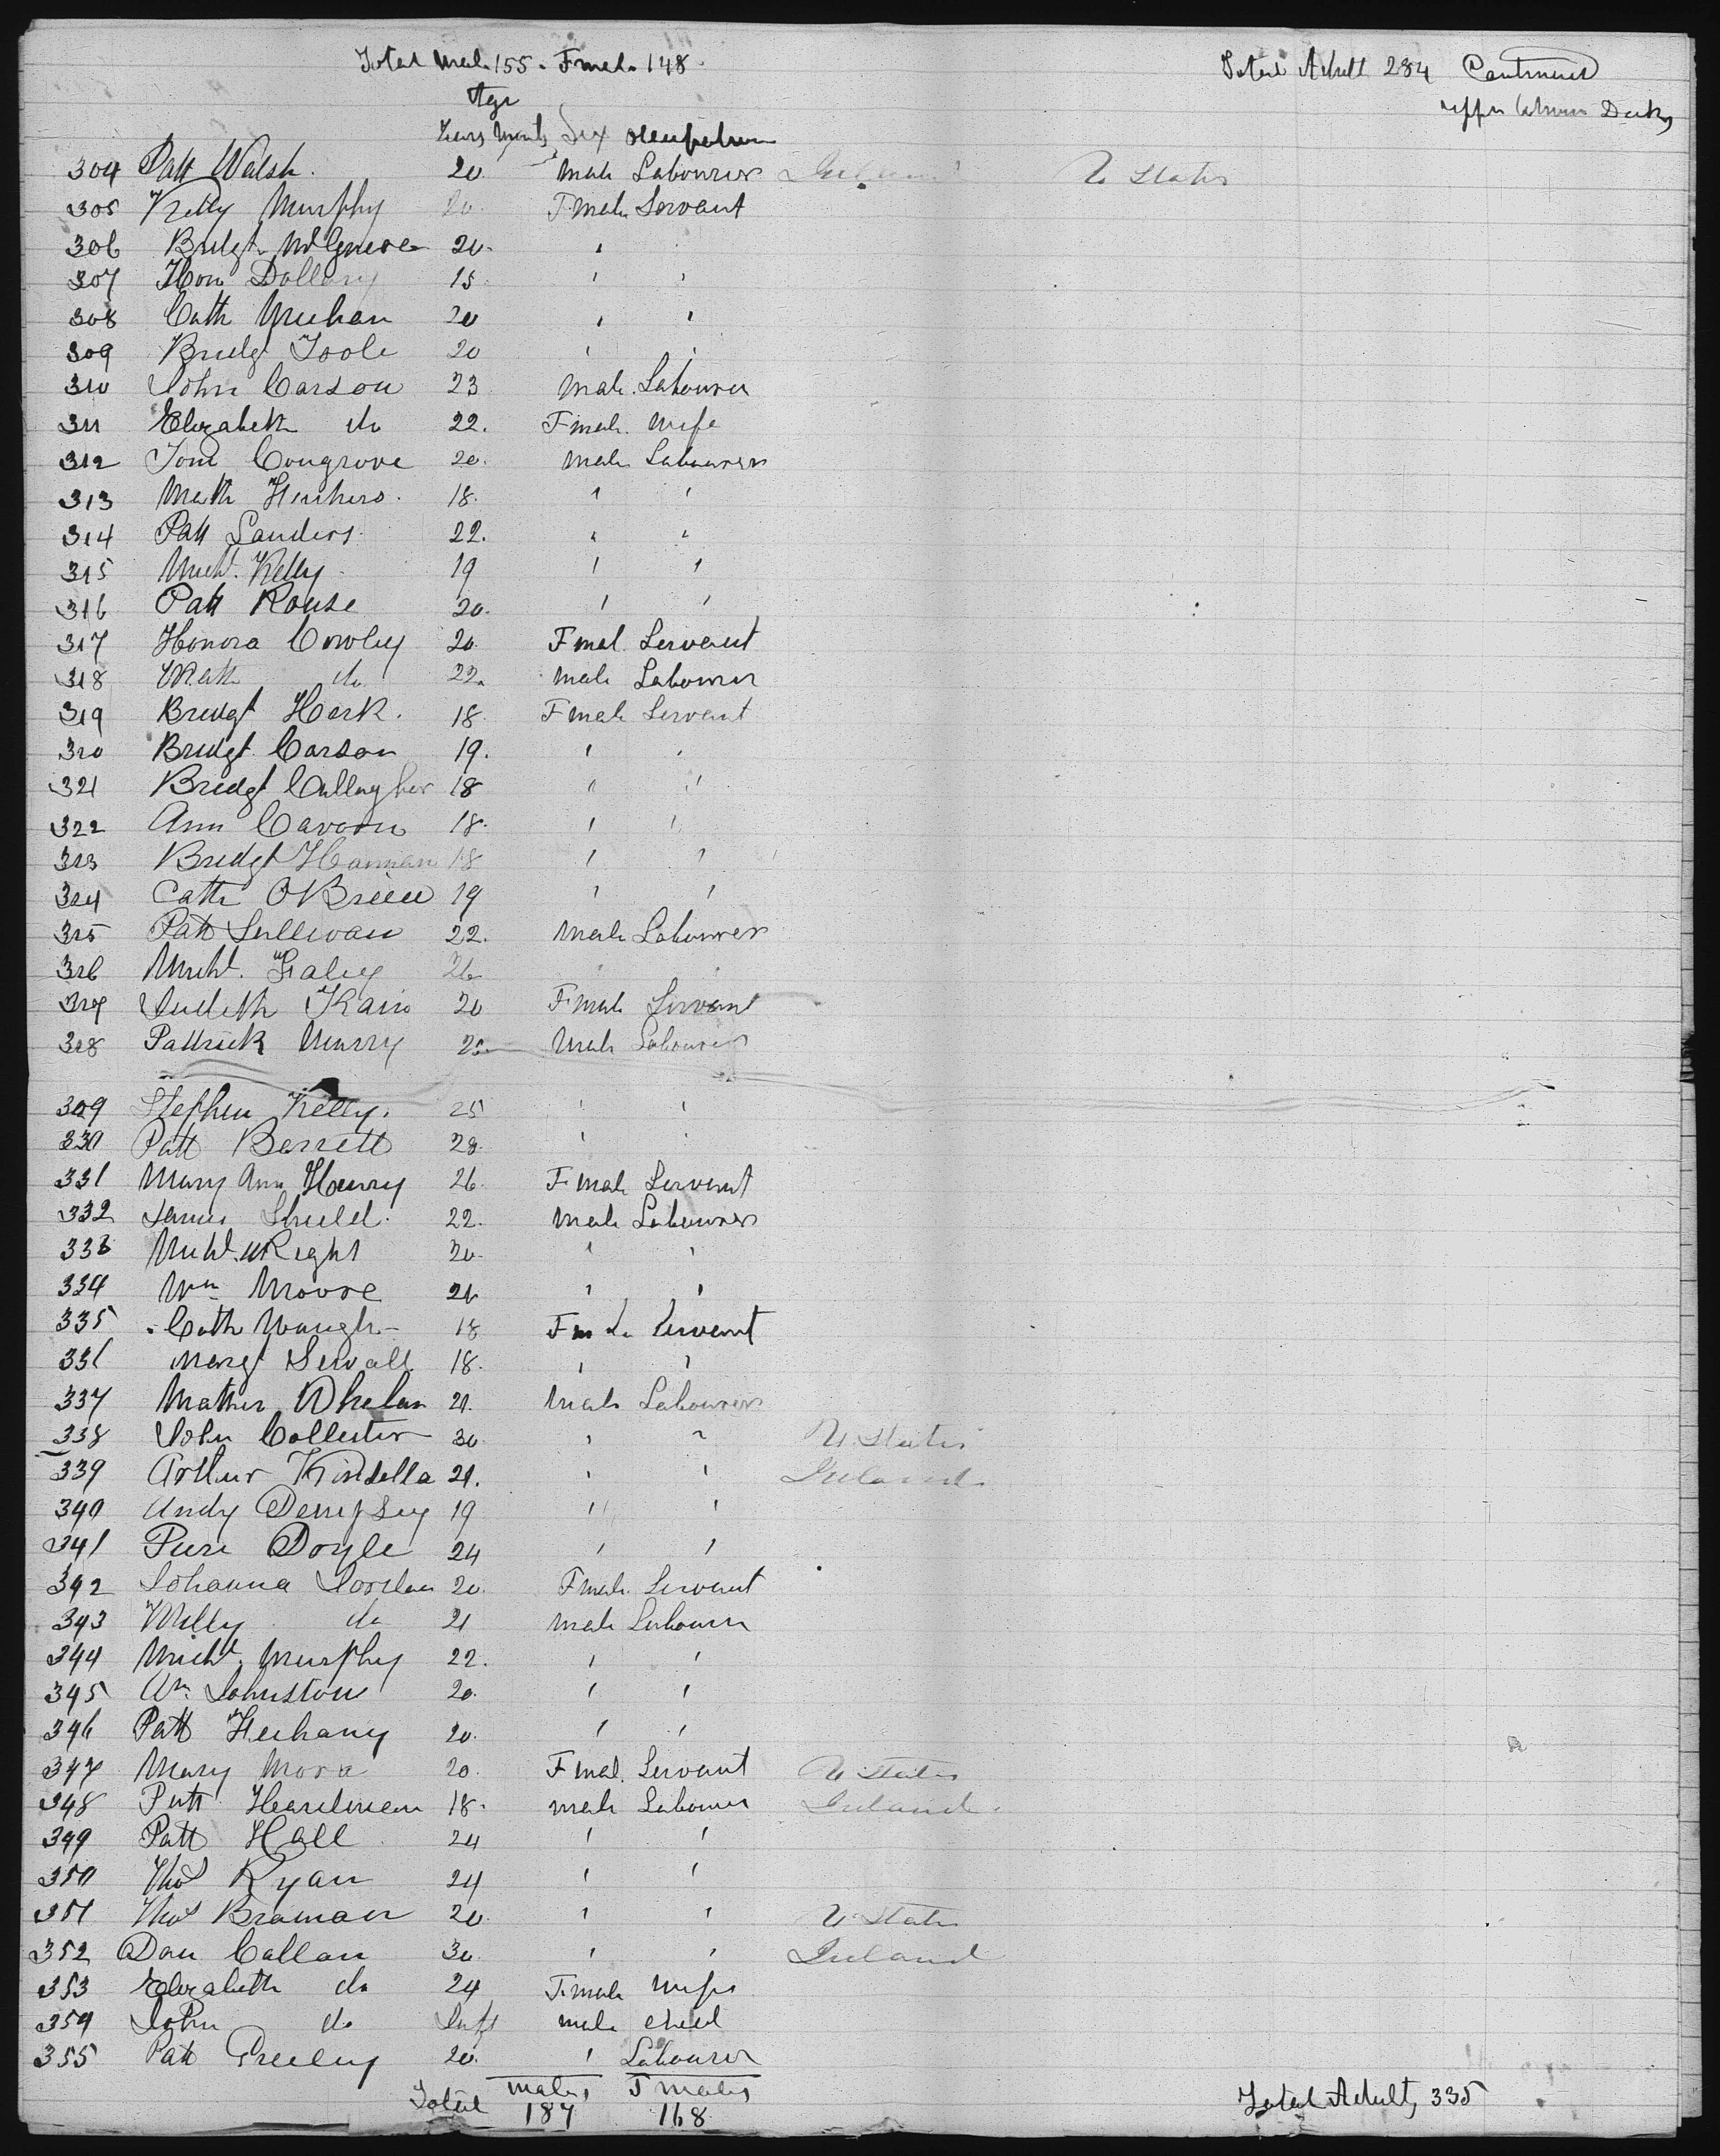 Total Male 155 . Fmal. 148 . Total Adult 284 Continued
Age upper between Decks
Years Months Sex Occupation
304 Patt Walsh. 20 male Labourer Ireland U States
305 Kelly Murphy 20. Fmale Servant
306 Bridgt 20. "
307 Hon 18. " "
308 Cath Meehan 20 " "
309 Bridgt Toole 20 " "
310 John Carson 23 male. Labourer
311 Elizabeth do 22. Fmale. Wife
312 Tom Congrove 20. male Labourer
313 Math 18. " "
314 Patt Sanders 22. " "
315 Michl. Kelly 19 " "
316 Patt Rouse 20. " "
317 Honora Cowley 20. Fmal. Servant
318 Matt do 22. male Labourer
319 Bridgt Hork. 18. Fmale Servant
320 Bridgt Carson 19. " "
321 Bridgt Callagher 18 " "
322 Ann 18. " "
323 Bridgt 18 " "
324 Cath OBrien 19 " "
325 Patt Sullivan 22. male Labourer
326 Michl. 26 " "
327 Judith Kain 20 Fmale Servant
328 Pattrick Murry 20 male Labourer
329 Stephen Kelly. 25 " "
330 Patt Barrett 28. " "
331 Mary Ann Henry 26. Fmale Servant
332 James Shield. 22. male Labourer
333 Michl. 20. " "
334 Wm Moore 21 " "
335 Cath Waugh 18 Fmale Servant
336 Margt Sewall 18. " "
337 Mather Whelan 21. male Labourer
338 John 30. " " U States
339 Arthur Kinsella 21. " " Ireland
340 Andy Dempsey 19 " "
341 Doyle 24 " "
342 Johanna Jordan 20. Fmale. Servant
343 Willy do 21 male Labourer
344 Michl. Murphy 22. " "
345 Wm. Johnston 20. " "
346 Patt 20. " "
347 Mary Mora 20. Fmal. Servant U States
348 Patt Hardiman 18. male Labourer Ireland.
349 Patt Hall 24 " "
350 Thos Ryan 24 " "
351 Thos Braman 20. " " U States
352 Dan Callan 30. " " Ireland
353 Elizabeth do 24 Fmale wife
354 John do Inft male child
355 Patt 20. " Labourer
males Fmales
Total 187 168 Total Adult, 335